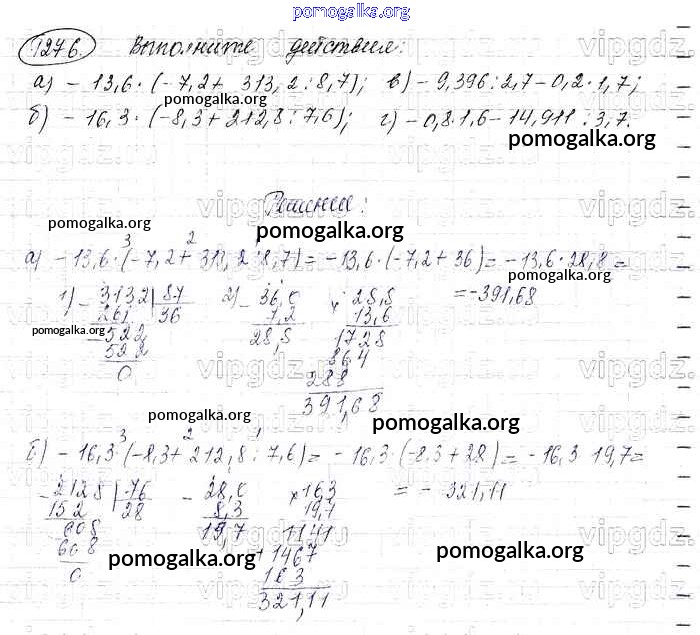 pomogalka.org
1276. Выполните действия:
а) - 13,6 · (- 7,2 + 313,2 : 8,7); в) - 9,396 : 2,7 - 0,2 · 1,7;
pomogalka.org
б) - 16,3 · (-8,3 + 212,8 : 7,6); г) - 0,8 · 1,6 - 14,911 : 3,7.
pomogalka.org
Решение:
pomogalka.org
pomogalka.org
3 2 1
а) - 13,6 · (- 7,2 + 313,2 : 8,7) = - 13,6 · (- 7,2 + 36) = - 13,6 · 28,8 =
pomogalka.org
= -391,68
1) - 3132 | 87 2) - 36,0 × 28,8
261 36 7,2 13,6
pomogalka.org
- 522 28,8 1728
522 864
0 288
391,68
pomogalka.org
pomogalka.org
3 2 1
б) - 16,3 · (-8,3 + 212,8 : 7,6) = - 16,3 · (-8,3 + 28) = - 16,3 19,7 =
= - 321,11
- 2128 | 76 - 28,0 × 16,3
152 28 8,3 19,7
608 19,7 1141
608 + 1467
0 163
321,11
pomogalka.org
pomogalka.org
pomogalka.org